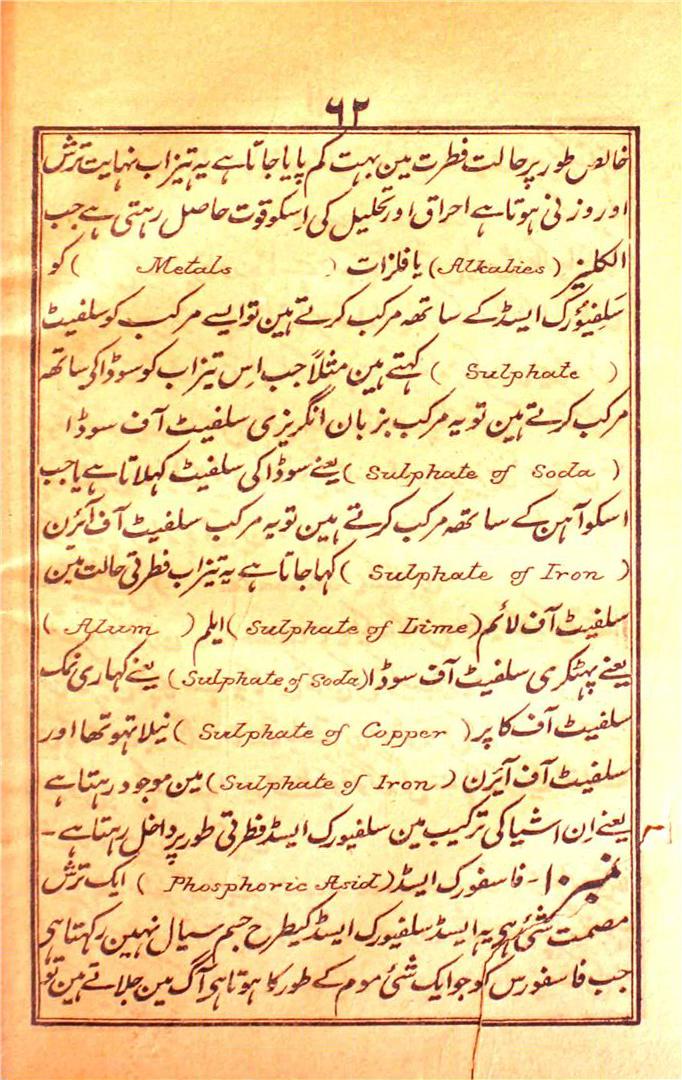 ۶۲
خالص طور پر حالت فطرت مین بہت کم پایا جاتا ہے یہ تیزاب نہایت ترش
اور وزنی ہوتا ہے احراق اور تحلیل کی اسکو قوت حاصل رہتی ہے جب
الکلیز (Alkalies) یا فلزات (Metals) کو
سَلفیُورک ایسڈ کے ساتھہ مرکب کرتے ہین تو ایسے مرکب کو سلفیٹ
(Sulphate) کہتے ہین مثلاً جب اِس تیزاب کو سوڈا کی ساتھہ
مرکب کرتے ہین تو یہ مرکب بزبان انگریزی سلفیٹ آف سوڈا
(Sulphate of Soda) یعنے سوڈا کی سلفیٹ کہلاتا ہے یا جب
اسکو آہن کے ساتھہ مرکب کرتے ہین تو یہ مرکب سلفیٹ آف آئرن
(Sulphate of Iron) کہا جاتا ہے یہ تیزاب فطرتی حالت مین
سلفیٹ آف لائم (Sulphate of Lime) ایلم (Alum)
یعنے پہٹکری سلفیٹ آف سوڈا (Sulphate of Soda) یعنے کہاری نمک
سلفیٹ آف کاپر (Sulphate of Copper) نیلا تہوتھا اور
سلفیٹ آف آیرن (Sulphate of Iron) مین موجود رہتا ہے
یعنے اِن اشیا کی ترکیب مین سلفیورک ایسڈ فطرتی طور پر داخل رہتا ہے۔
نمبر ۱۰۔ فاسفورک ایسڈ (Phosphoric Asid) ایک ترش
مصمت شئ ہی یہ ایسڈ سلفیورک ایسڈ کیطرح جسم سیال نہین رکہتا ہی
جب فاسفورس کو جو ایک شئ موم کے طور کا ہوتا ہی آگ مین جلاتے ہین تو